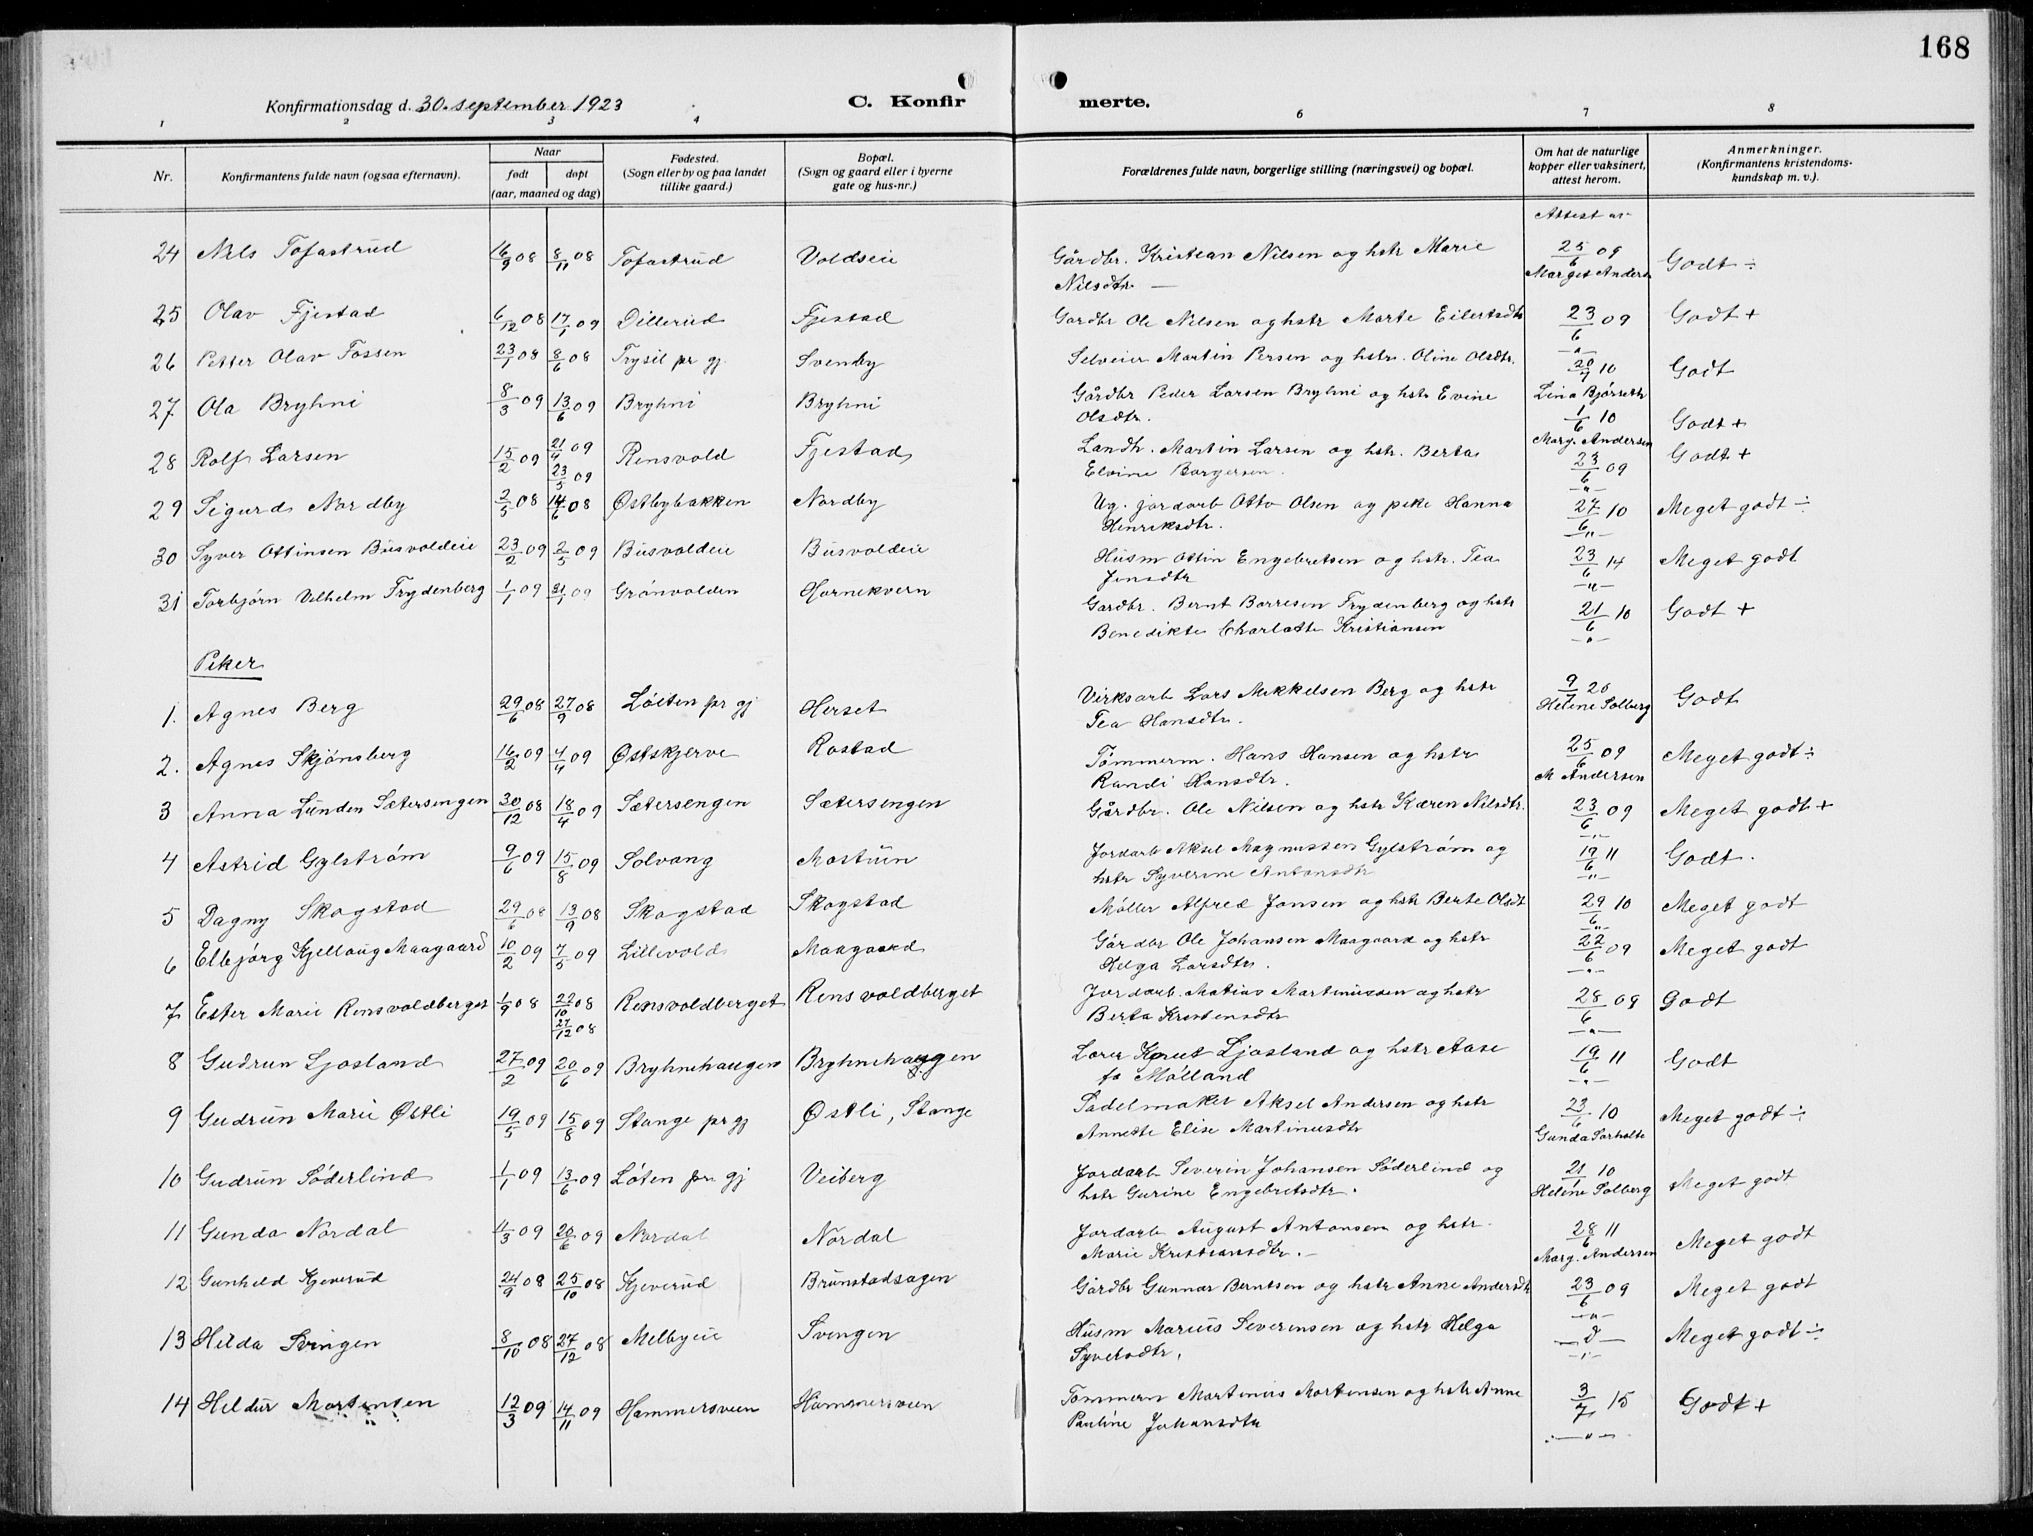 168
Konfirmationsdag d. 30. september 1923 C. Konfir merte.
1 2 3 4 6 7 8
Nr. Konfirmantens fulde navn (ogsaa efternavn). Naar født døpt (aar, maaned og dag) Fødested. (Sogn eller by og paa landet tillike gaard.) Bopæl. (Sogn og gaard eller i byerne gate og hus-nr.) Forældrenes fulde navn, borgerlige stilling (næringsvei) og bopæl. Om hat de naturlige kopper eller vaksinert, attest herom. Anmerkninger. (Konfirmantens kristendoms-kundskap m. v.).
Attest av
24 Nils Tofastrud 16/9 08 8/11 08 Tofastrud Voldseie Gårdbr. Kristian Nilsen og hstr Marie 25/6 09 Godt ÷
Nilsdtr. — Marget Anders
25 Olav Fjestad 6/12 08 17/1 09 Dillerud Fjestad Gardbr Ole Nilsen og hstr Marte Eilertsdtr 23/6 09 Godt +
26 Petter Olav Fossen 23/1 08 8/6 08 Trysil pr gj. Svenby Selveier Martin Persen og hstr. Oline Olsdtr. 20/7 10 Godt
27 Ola Bryhni 8/3 09 13/6 09 Bryhni Bryhni Gårdbr Peder Larsen Bryhni og hstr Evine Lina Bjørseth
Olsdtr. 1/6 10 Godt +
28 Rolf Larsen 15/2 09 21/4 09 23/5 09 Rensvold Fjestad Landh. Martin Larsen og hstr. Berta Marg. Andersen Godt +
Elvine Borgersen. 23/6 09
29 Sigurd Nordby 2/5 08 14/6 08 Østbybakken Nordby Ug. jordarb Otto Olsen og pike Hanna 27/6 10 Meget godt ÷
Henriksdtr.
30 Syver Ottinsen Busvoldeie 23/2 09 2/5 09 Busvoldeie Busvoldeie Husm Ottin Engebretsen og hstr. Tea 23/6 14 Meget godt
Jensdtr
31 Torbjørn Vilhelm Frydenberg 1/1 09 31/1 09 Grønvolden Hornekvern Gardbr. Bernt Borresen Frydenberg og hstr 21/6 10 Godt +
Benedikte Charlotte Kristiansen
Piker
1. Agnes Berg 29/6 08 27/9 08 Løiten pr gj Herset Virksarb Lars Mikkelsen Berg og hstr 9/7 20 Godt
Tea Hansdtr. Helene Solberg
2. Agnes Skjønsberg 16/2 09 4/4 09 Østskjerve Rostad Tømmerm. Hans Hansen og hstr 25/6 09 Meget godt ÷
Randi Hansdtr. M Andersen
3 Anna Lunden Sætersengen 30/12 08 18/4 09 Sætersengen Sætersengen Gårdbr. Ole Nilsen og hstr Karen Nilsdtr. 23/6 09 Meget godt +
4 Astrid Gylstrøm 9/6 09 15/8 09 Solvang Mostuen Jordarb Aksel Magnussen Gylstrøm og 19/6 11 Godt.
hstr Syverine Antonsdtr
5 Dagny Skogstad 29/6 08 13/9 08 Skogstad Skogstad Møller Alfred Jonsen og hstr Berte Olsdt 29/6 10 Meget godt
6 Elbjørg Kjellaug Maagaard 10/2 09 7/5 09 Lillevold Maagaard Gårdbr Ole Johansen Maagaard og hstr 22/6 09 Meget godt
Helga Larsdtr.
7 Ester Marie Rensvoldberget 1/9 08 22/10 08 27/12 08 Rensvoldberget Rensvoldberget Jordarb. Matias Martinussen og hstr 28/6 09 Godt
Berta Kristensdtr
8 Gudrun Ljosland 27/2 09 20/6 09 Bryhnehaugen Bryhnehaugen Lærer Knut Ljosland og hstr Aase 19/6 11 Godt
fø Mølland
9 Gudrun Marie Østli 19/5 09 15/8 09 Stange pr gj Østli, Stange Sadelmaker Aksel Andersen og hstr 23/6 10 Meget godt ÷
Annette Elise Martinusdtr Gunda Sørholte
10 Gudrun Søderlind 1/1 09 13/6 09 Løten pr gj Veiberg Jordarb Severin Johansen Søderlind og 21/1 10 Meget godt
hstr Gurine Engebretsdtr. Helene Solberg
11 Gunda Nordal 4/3 09 20/6 09 Nordal Nordal Jordarb August Antonsen og hstr. 28/6 11 Meget godt
Marie Kristiansdtr. — Marg. Andersen
12 Gunhild Kjeverud 24/9 08 25/10 08 Kjeverud Brunstadsagen Gårdbr Gunnar Berntsen og hstr Anne Andersdtr 23/6 09 Meget godt
13 Hilda Svingen 8/10 08 27/12 08 Melbyeie Svingen Husm Marius Severinsen og hstr Helga Meget godt ÷
Syversdtr.
14 Hildur Mortensen 12/3 09 14/11 09 Hammersveen Hammersveen Tømmerm Martinus Mortensen og hstr Anne 3/7 15 Godt +
Pauline Johansdtr